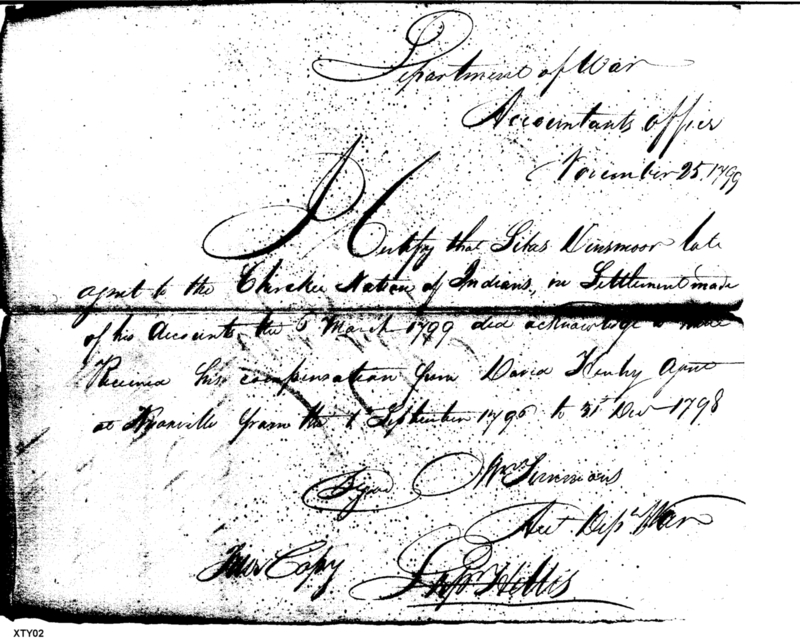 Department of War
Accountants office
November 25. 1799
I Certify that Silas Dinsmoor late
agent to the Cherokee Nation of Indians, in Settlement made
of his Accounts the 5 March 1799 did acknowledge to have
Received his compensation from David Henly Agent
at Knoxville from the 1 September 1796 to 31st Decr 1798
Signed Wm Simmons
Acct Dept War
True Copy
XTY02